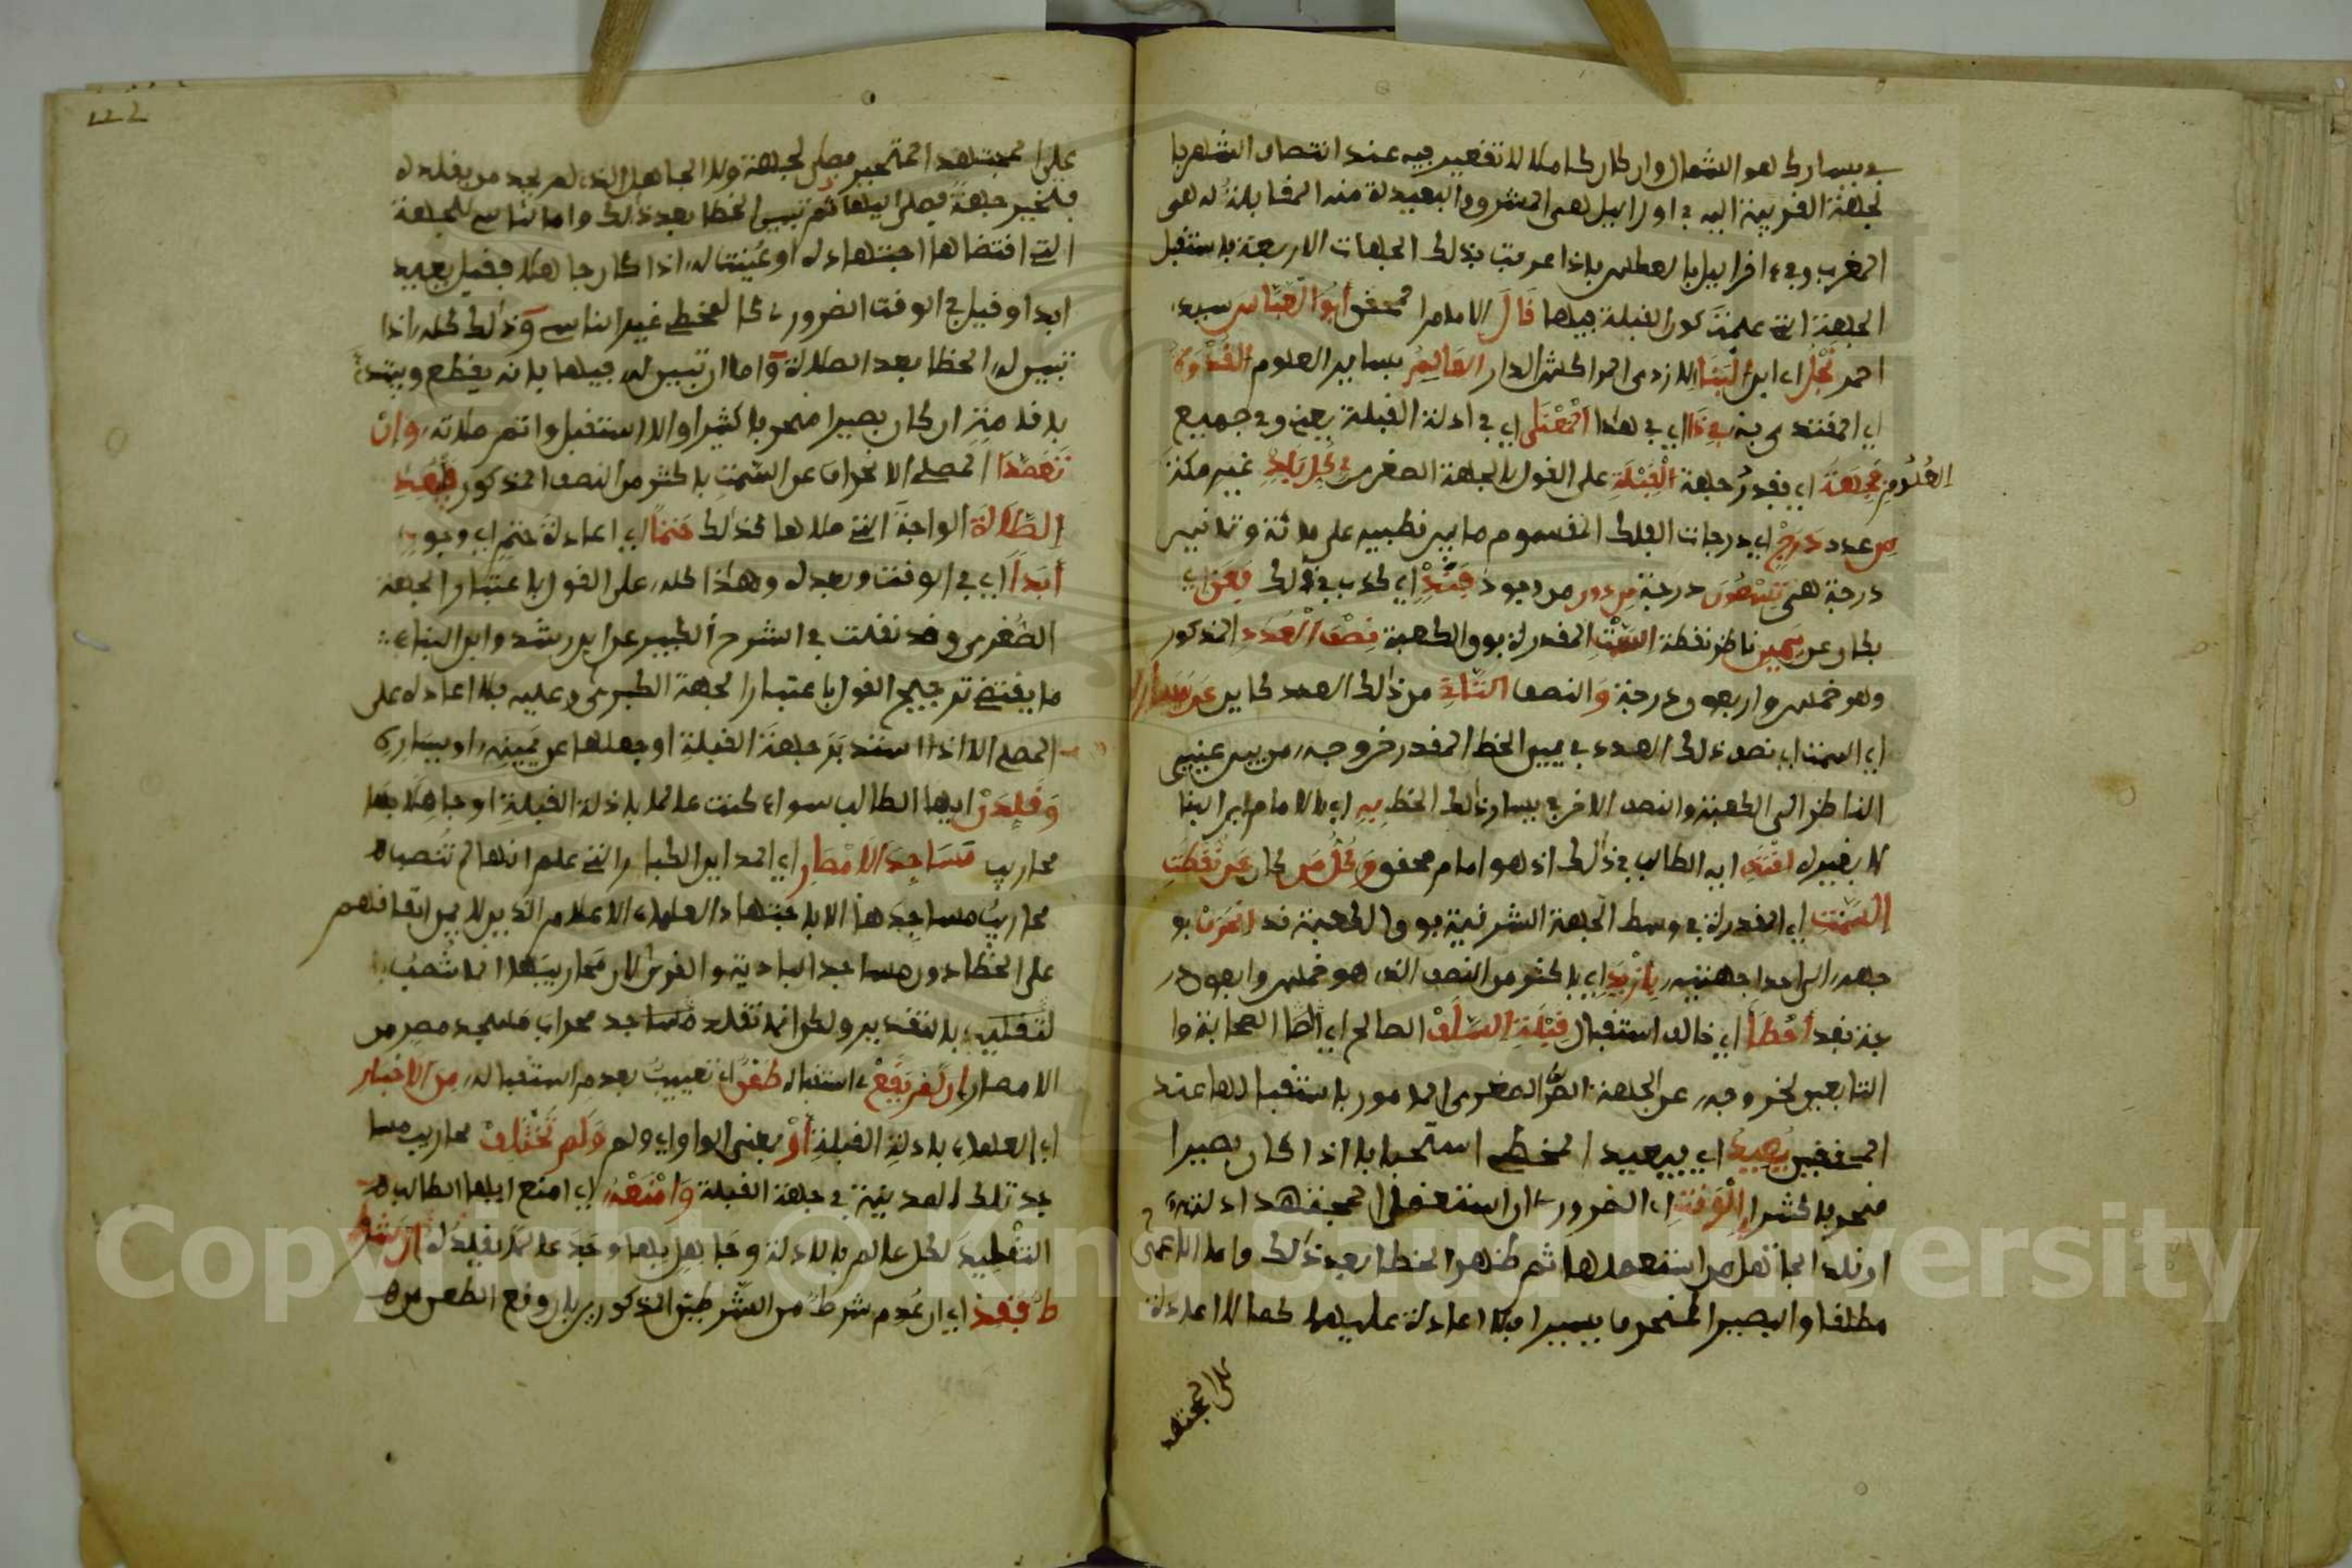 في يسارك هو الشمال وان كان كاملا لا تقعير فيه عند انتصاب الشهر با
لجهة القريبة اليه في اول ابريل هي المشرق والبعيدة منه المقابلة له هي
المغرب وفي افرابيل بالعكس فاذا عرفت بذلك الجهات الاربعة فاستقبل
الجهة التي علمت كون القبلة فيها قال الامام المحقق أبو العباس سيدي
احمد نجل اي ابن البنا الازدي المراكشي الدار العالم بساير العلوم القدوة
اي المقتدى به في ذا اي في هذا المعنى اي في ادلة القبلة يعني وفي جميع
العلوم فجهة اي فقدر جهة القبلة على القول بالجهة الصغرى في كل بلد غير مكة
من عدد درج اي درجات الفلك المقسوم ما بين قطبيه على مائة وثمانين
درجة هي تسعون درجة من دون من وجود فند اي كذب في ذلك فعن اي
فكان عن يمين ناظر نقطة السمت المقدرة فوق الكعبة نصف العدد المذكور
وهو خمس واربعون درجة والنصف الثاني من ذلك العدد كاين عن يسار
اي السمت اي نصف ذلك العدد في يمين الخط المقدر خروجه من بين عينيي
الناظر الى الكعبة والنصف الاخر في يسار ذلك الخط به اي بالامام ابن البنا
لا بغيره اقتد ايه الطالب في ذلك اذ هو امام محقق وكل من كان عن نقطة
السمت اي المقدرة في وسط الجهة الشرقية فوق الكعبة قد انحرف
جهه الى احدا جهتيه بازيد اي باكثر من النصف الذي هو خمس واربعون در
جة فقد أخطأ اي خالف استقبال قبلة السلف الصالح اي الصحابة وا
لتابعين لخروجه عن الجهة الصغرى المامور باستقبالها عند
المحققين يعيد اي فيعيد المخطي استحبابا اذا كان بصيرا
منحرفا كثيرا الوقت اي الضروري ان استعمل المجتهد ادلته
او قلد الجاهل من استعملها ثم ظهر الخطا بعد ذلك واما الاعمى
مطلقا والبصير المنحرف يسيرا فلا اعادة عليهما كما لا اعادة
على المجتهد
122
على المجتهد المتحير فصلى لجهة ولا الجاهل الذي لم يجد من يقلده
فتخير جهة فصلى اليها ثم تبين الخطا بعد ذلك واما الناسي للجهة
التي اقتضاها اجتهاده او عينت له اذا كان جاهلا فقيل يعيد
ابدا وقيل في الوقت الضروري كالمخطي غير الناسي وذلك كله اذا
تبين له الخطا بعد الصلاة واما ان تبين له فيها فانه يقطع ويبتدئ
باقامة ان كان بصيرا منحرفا كثيرا والا استقبل واتم صلاته وان
تعمد المصلي الانحراف عن السمت باكثر من النصف المذكور فيعيد
الصلاة الواجبة التي صلاها كذلك حتما اي اعادة حتم اي وجوب
أبدا اي في الوقت وبعده وهذا كله على القول باعتبار الجهة
الصغرى وقد نقلت في الشرح الكبير عن ابن رشد وابن البنا
ما يقتضي ترجيح القول باعتبار الجهة الكبرى وعليه فلا اعادة على
المصلي الا اذا استدبر جهة القبلة او جعلها عن يمينه او يساره
وقلدن ايها الطالب سواء كنت عالما بادلة القبلة او جاهلا بها
محاريب مساجد الامصار اي المداين الكبار التي علم انها لم تنصب
محاريب مساجدها الا باجتهاد العلماء الاعلام الذين لا يمكن اتفاقهم
على الخطا دون مساجد البادية والقرى لان محاريبها انما تنصب
بالتقدير ولكن انما تقلد مساجد محراب مسجد مصر من
الامصار ان لم يقع استقبال طعن اي تعييب بعدم استقباله من الاخيار
اي العلماء بادلة القبلة أو بمعنى الواو اي ولم ولم تختلف محاريب مسا
جد تلك المدينة في جهة القبلة وامنعه اي امنع ايها الطالب
التقليد لكل عالم بالادلة وجاهل بها وجد عالما يقلده ان شر
ط فقد اي ان عدم شرط من الشرطين المذكورين بان وقع الطعن من
Copyright © King Saud University